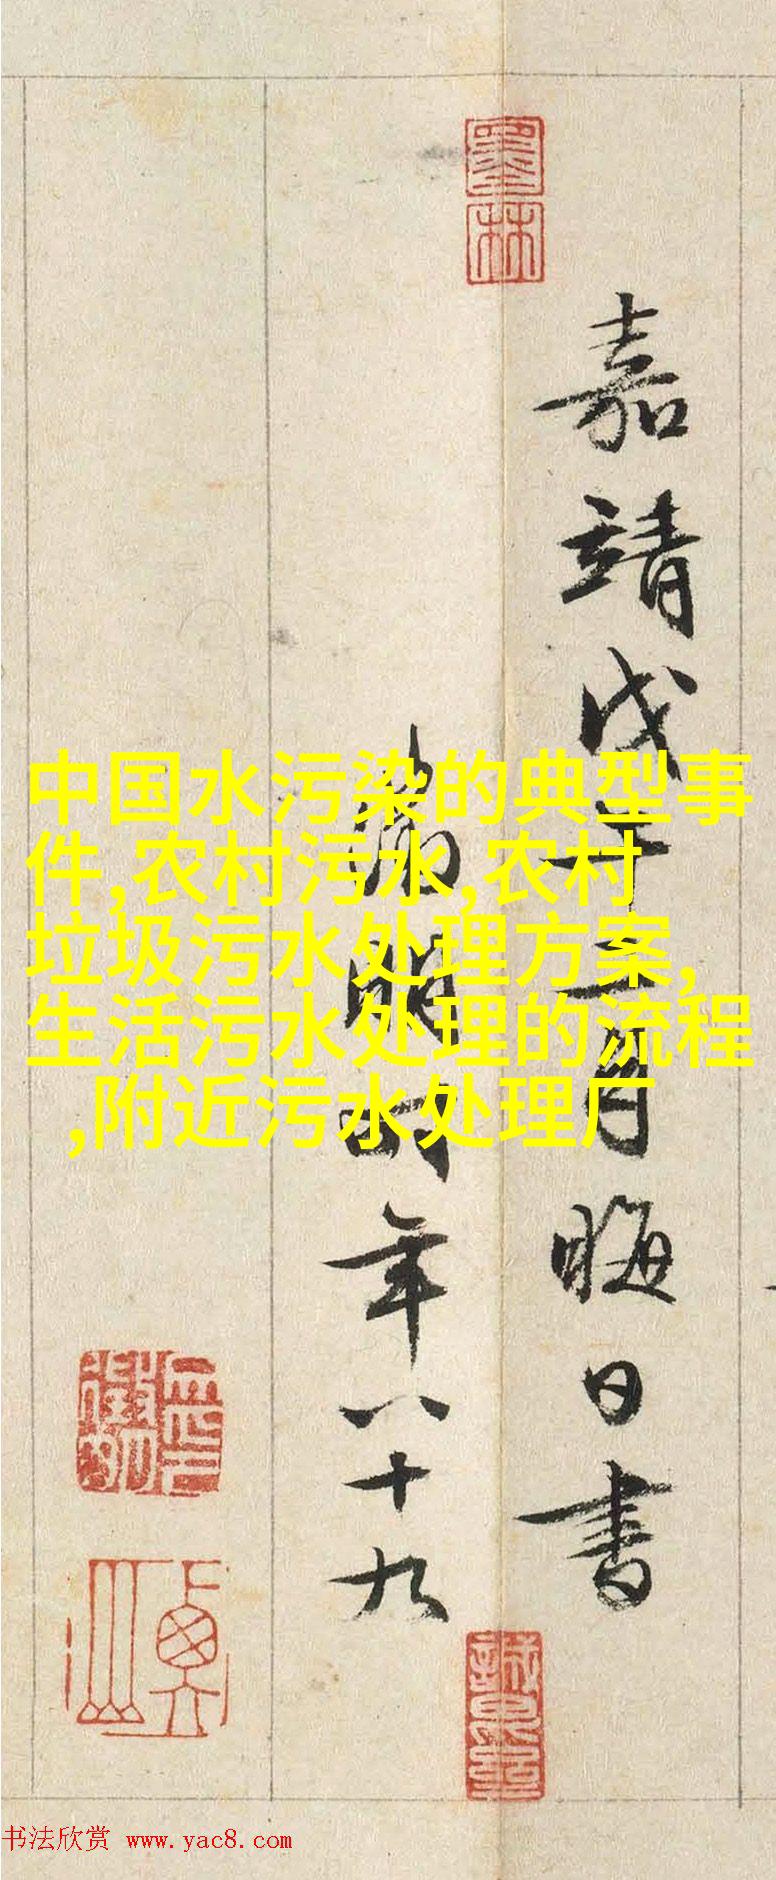 嘉靖戊午二月晦日書
徵明時年八十九
中国水污染的典型事
件,农村污水,农村
垃圾污水处理方案,
生活污水处理的流程
,附近污水处理厂
墨林
書法欣赏 www.yac8.com